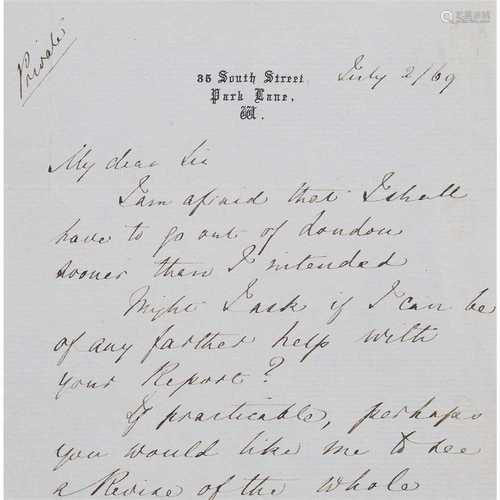 Private
35 South Street
Park Lane,
W.
July 2/69
My dear Sir
I am afraid that I shall
have to go out of London
sooner than I intended
Might I ask if I can be
of any farther help with
your Report?
If practicable, perhaps
you would like me to see
a Revise of the whole